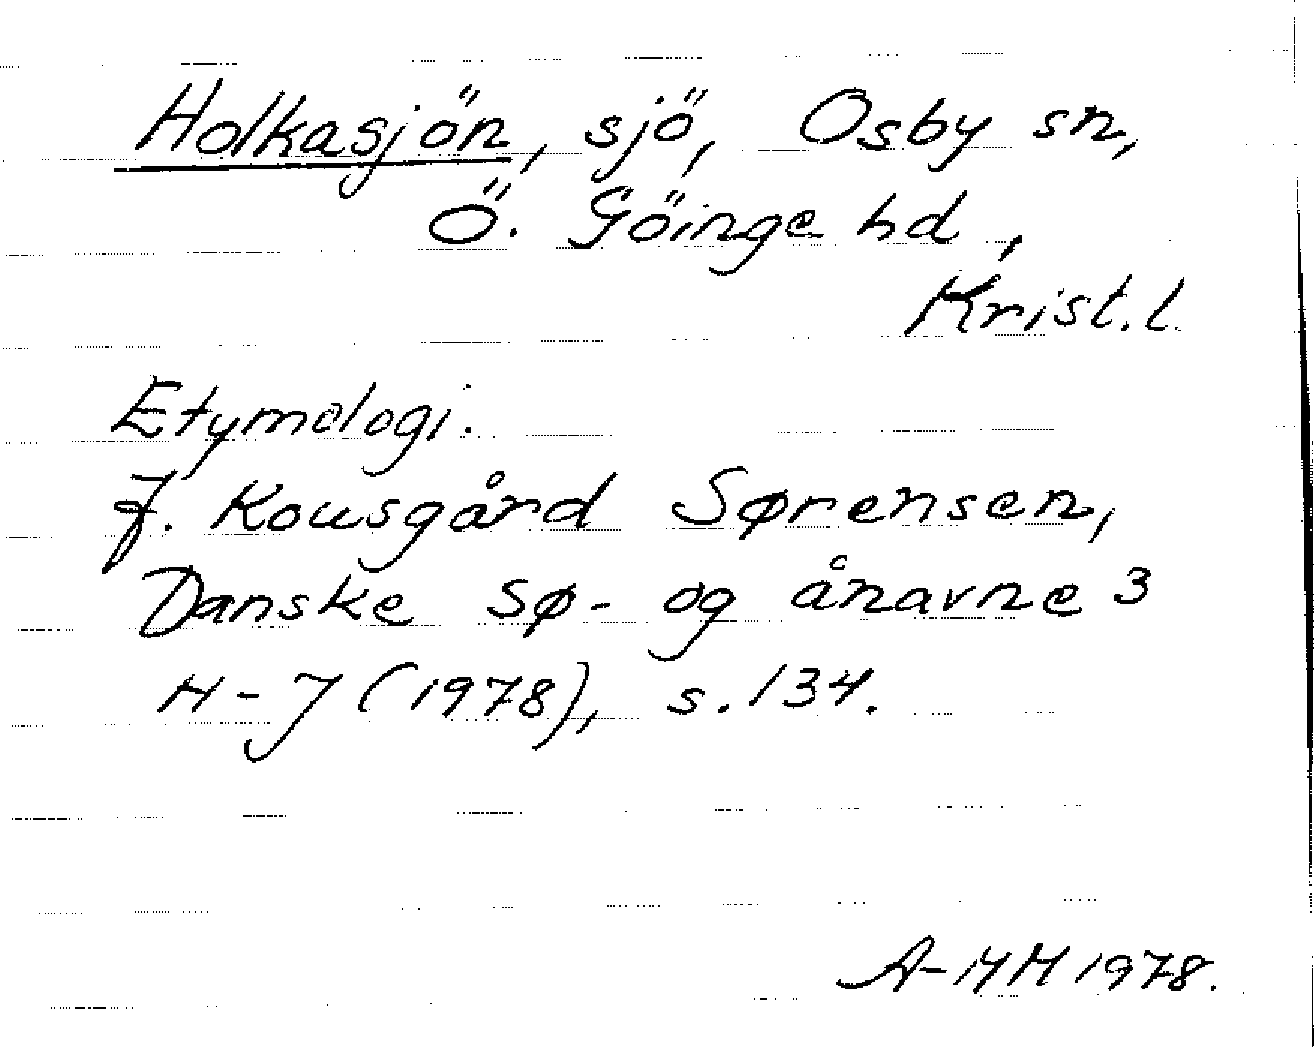 Holkasjön, sjö, Osby sn,
Ö. Göinge hd,
Krist. l.
Etymologi.
J. Kousgård Sørensen,
Danske sø- og ånavne 3
H-J (1978), s. 134.
A-MH 1978.